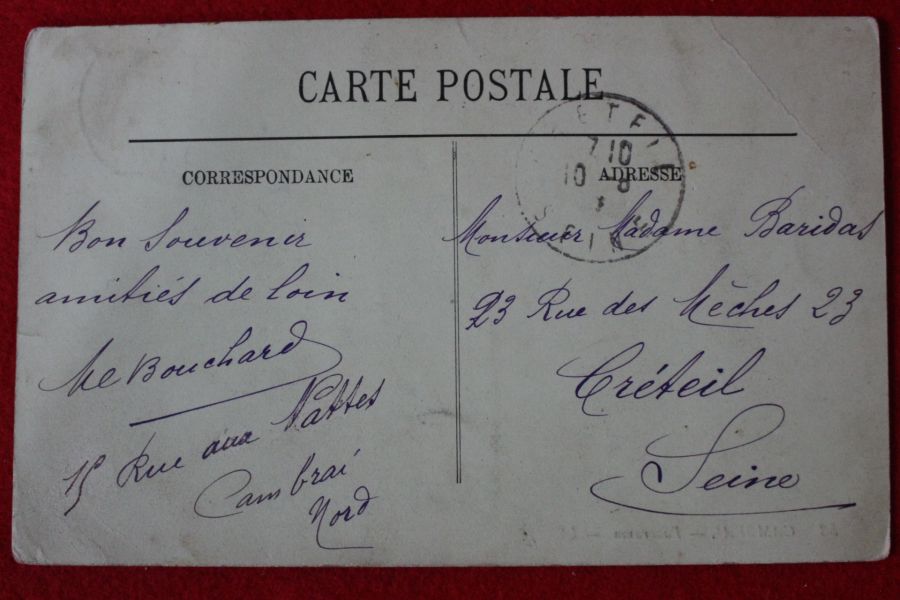 CARTE POSTALE
CORRESPONDANCE
Bon Souvenir
amitiés de loin
Me Bouchard
15 Rue aux Nattes
Cambrai
Nord
ADRESSE
Monsieur Madame Baridas
23 Rue des Mèches 23
Créteil
Seine
7 10
10 8